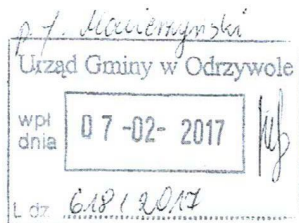 p. J. Macierzyński
Urząd Gminy w Odrzywole
wpł
dnia
07-02-2017
L.dz. 618/2017